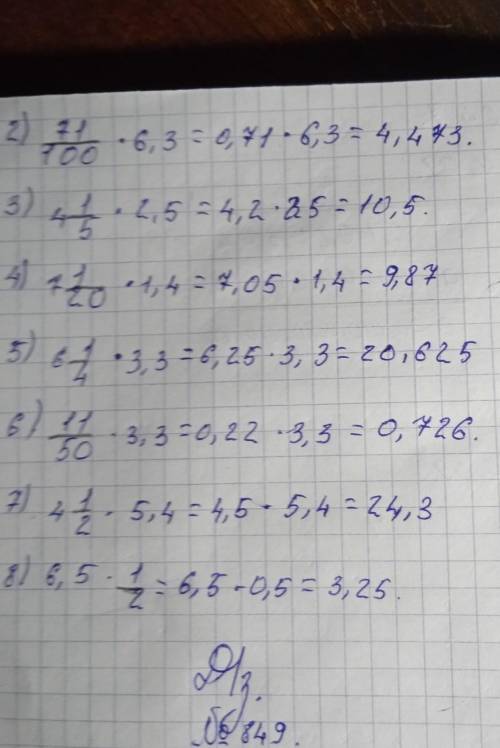 2) 71/100 · 6,3 = 0,71 · 6,3 = 4,473.
3) 4 1/5 · 2,5 = 4,2 · 2,5 = 10,5.
4) 7 1/20 · 1,4 = 7,05 · 1,4 = 9,87
5) 6 1/4 · 3,3 = 6,25 · 3,3 = 20,625
6) 11/50 · 3,3 = 0,22 · 3,3 = 0,726.
7) 4 1/2 · 5,4 = 4,5 · 5,4 = 24,3
8) 6,5 · 1/2 = 6,5 · 0,5 = 3,25.
Д/з.
№ 849.